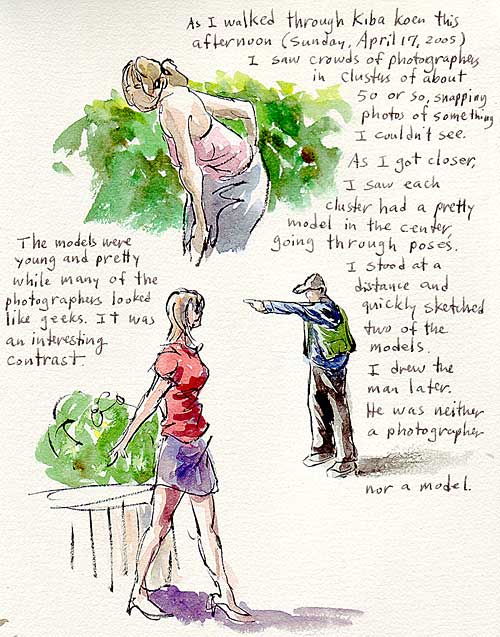 As I walked through Kiba koen this
afternoon (Sunday, April 17, 2005)
I saw crowds of photographers
in clusters of about
50 or so, snapping
photos of something
I couldn't see.
As I got closer,
I saw each
cluster had a pretty
model in the center,
going through poses.
I stood at a
distance and
quickly sketched
two of the
models.
I drew the
man later.
He was neither
a photographer
nor a model.
The models were
young and pretty
while many of the
photographers looked
like geeks. It was
an interesting
contrast.